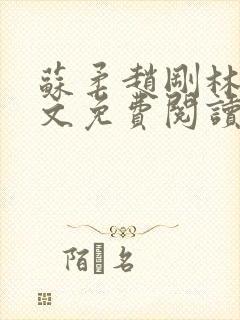 蘇柔趙剛林
文免費閱讀
陌 名